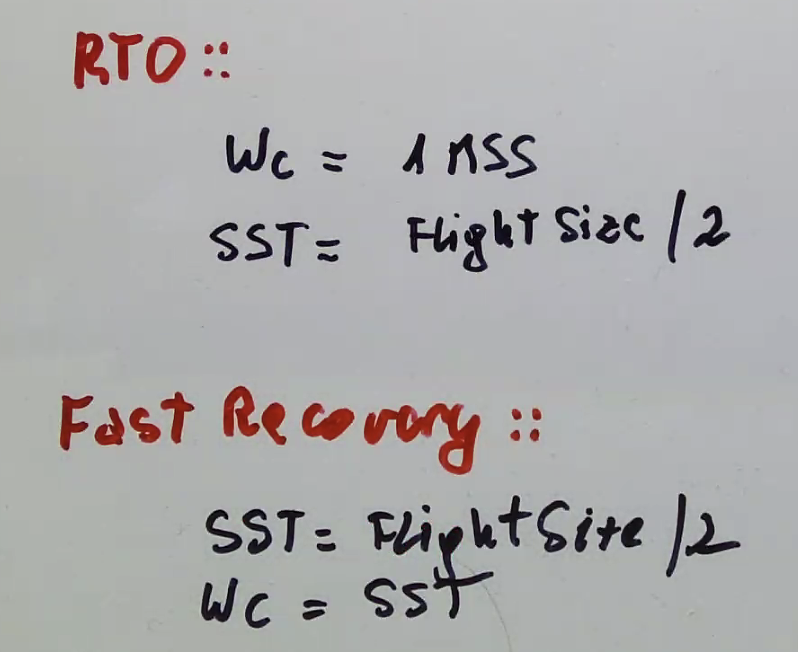 RTO ::
Wc = 1 MSS
SST = Flight Size / 2
Fast Recovery ::
SST = Flight Size / 2
Wc = SST